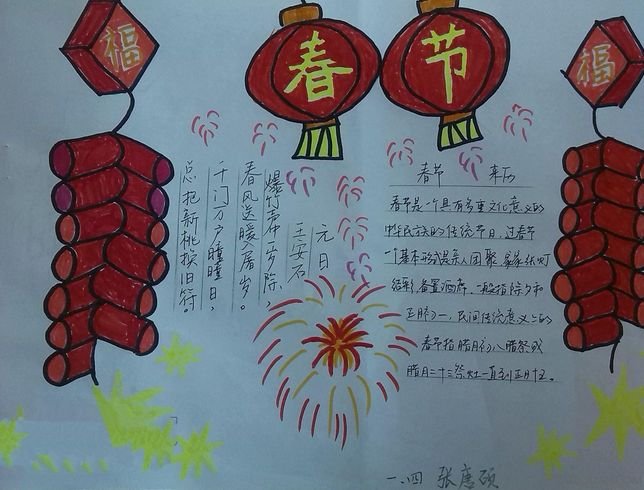 福
春
节
福
元日
王安石
爆竹声中一岁除，
春风送暖入屠苏。
千门万户曈曈日，
总把新桃换旧符。
春节 来历
春节是一个具有多重文化意义的
中华民族的传统节日，过春节
一个基本形式是亲人团聚、家家张灯
结彩、备置酒席，一般指除夕和
正月初一，民间传统意义上的
春节指腊月初八腊祭或
腊月二十三祭灶一直到正月十五。
一、四 张唐硕